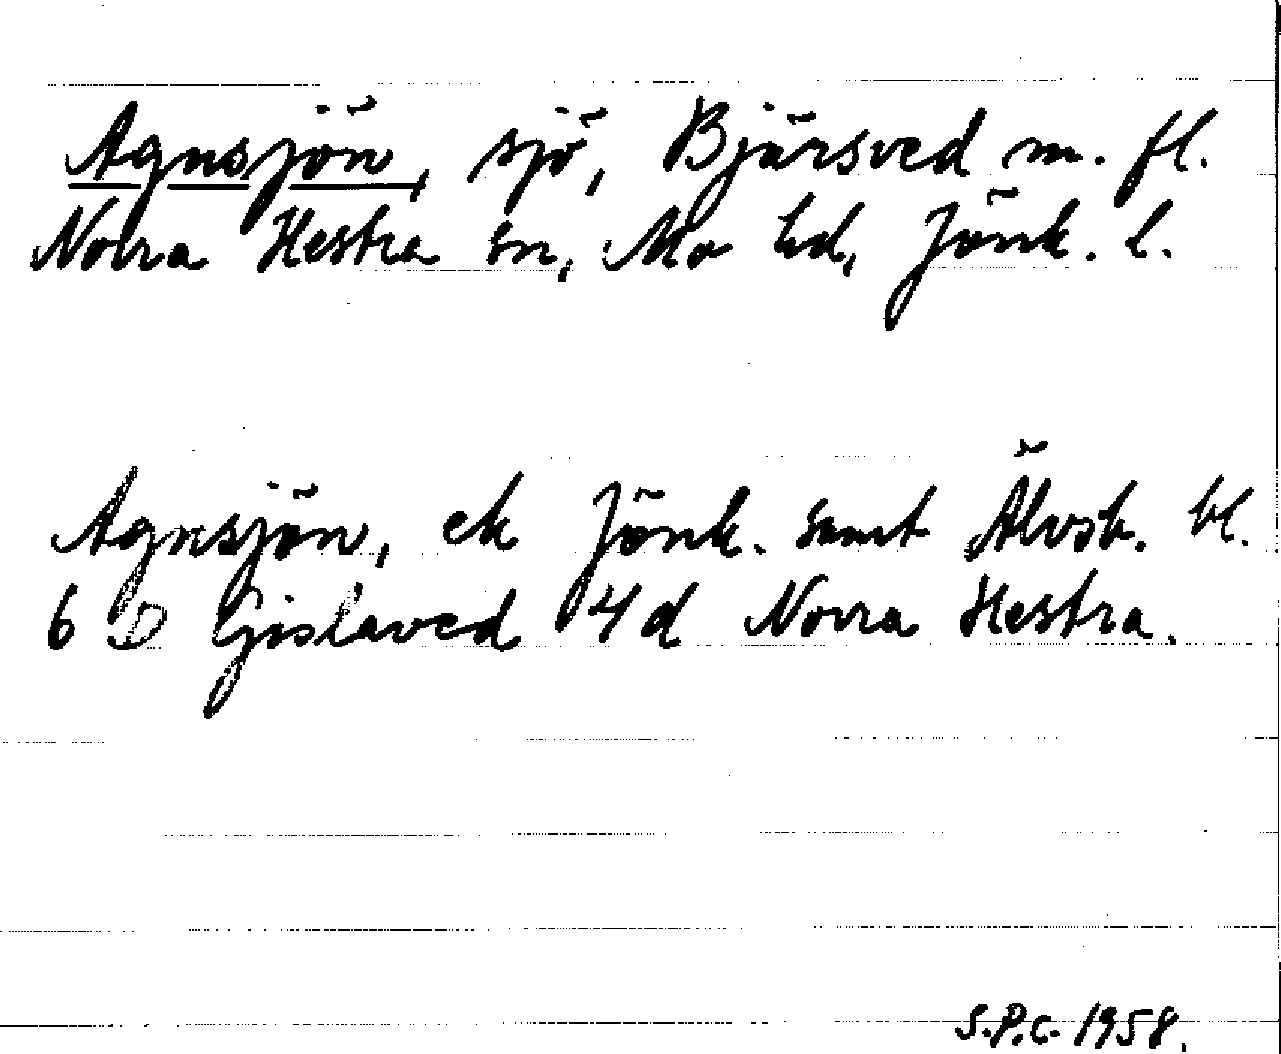 Agnsjön, sjö, Bjärsved m. fl.
Norra Hestra sn, Mo hd, Jönk. l.
Agnsjön, ek Jönk. samt Älvsb. bl.
6 D Gislaved 4 d Norra Hestra.
S.P.C. 1958.